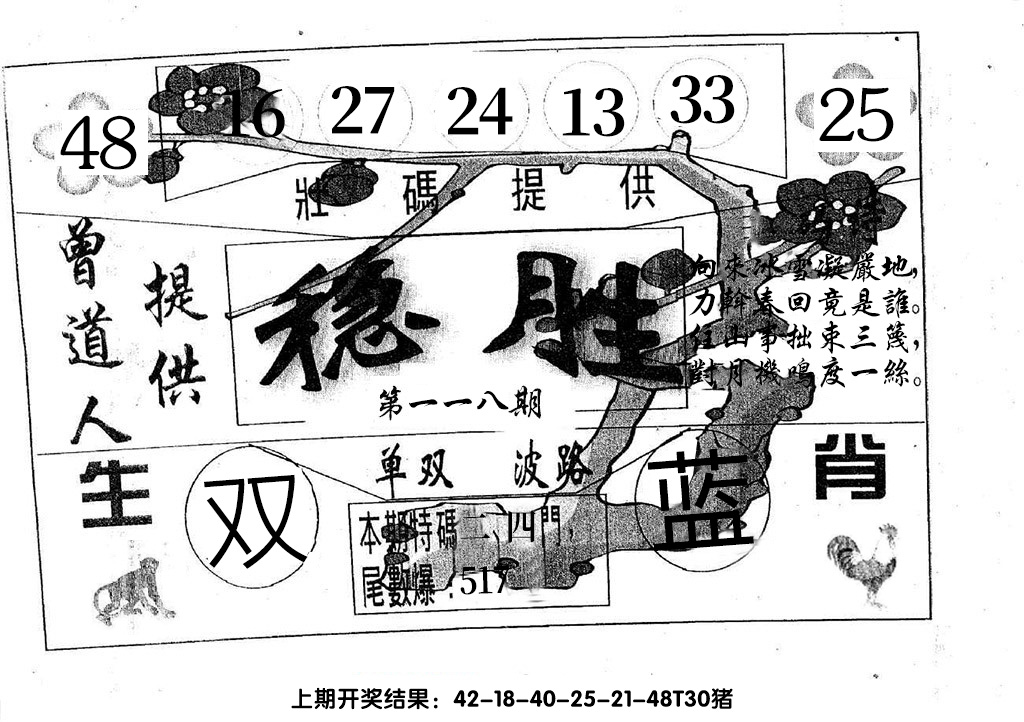 48 16 27 24 13 33 25
壯碼提供
曾道人
提供
稳胜
第一一八期
向來冰雪凝嚴地,
力斡春回竟是誰。
任凷事拙東三篾,
對月機鳴度一絲。
单双 波路
生肖
双
蓝
本期特碼二、四門,
尾數爆:517
上期开奖结果:42-18-40-25-21-48T30猪